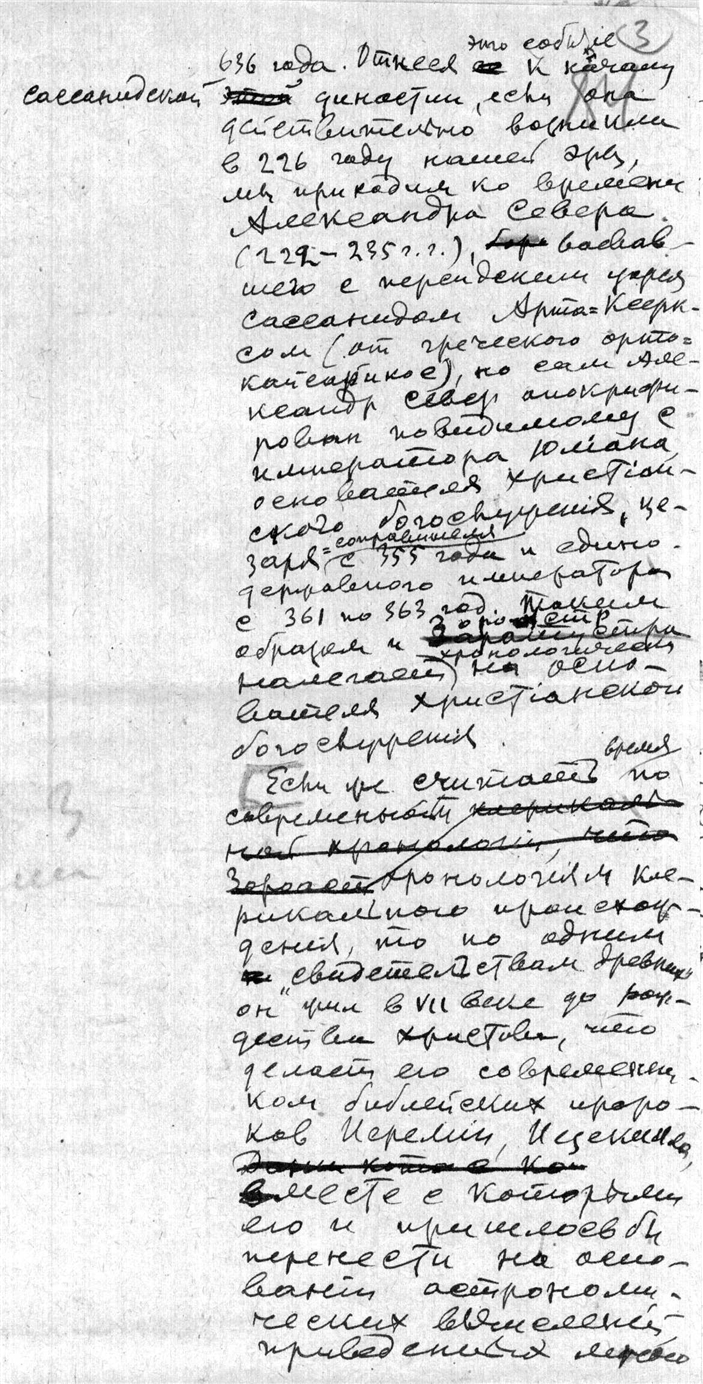 это событие (3)
84
636 года. Отнеся к началу
сассанидской династии, если она
действительно возникла
в 226 году нашей эры,
мы приходим ко времени
Александра Севера
(222–235 г.г.), воевав-
шего с персидским царем
сассанидом Арта=Ксерк-
сом (от греческого орто=
), но сам Але-
ксандр Север апокрифи-
рован повидимому с
императора Юлiана,
основателя христiан-
ского богослуженiя, це-
заря=соправителя
с 355 года и едино-
державного императора
с 361 по 363 год. Таким
образом и Зороастр
хронологически
налегает на осно-
вателя христiанской
богослуженiя.
время
Если же считать по
современным
хронологiям кле-
рикального происхож-
дения, то по одним
свидетельствам "древних"
он жил в VII веке до рож-
дества христова, что
делает его современни-
ком библейских проро-
ков Иеремии, Иезекиила,
вместе с которыми
его и пришлось бы
перенести на осно-
ванiи астрономи-
ческих вычисленiй,
приведенных мною